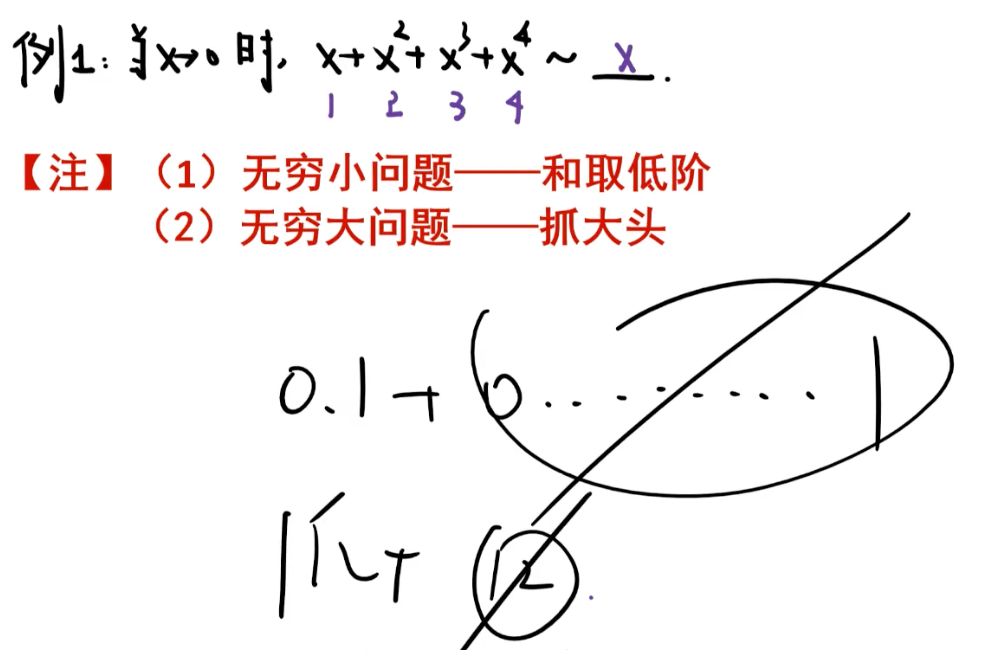 例1: 当x→0时, x+x²+x³+x⁴ ~ x.
1 2 3 4
【注】（1）无穷小问题——和取低阶
（2）无穷大问题——抓大头
0.1+0.........1
1亿+12